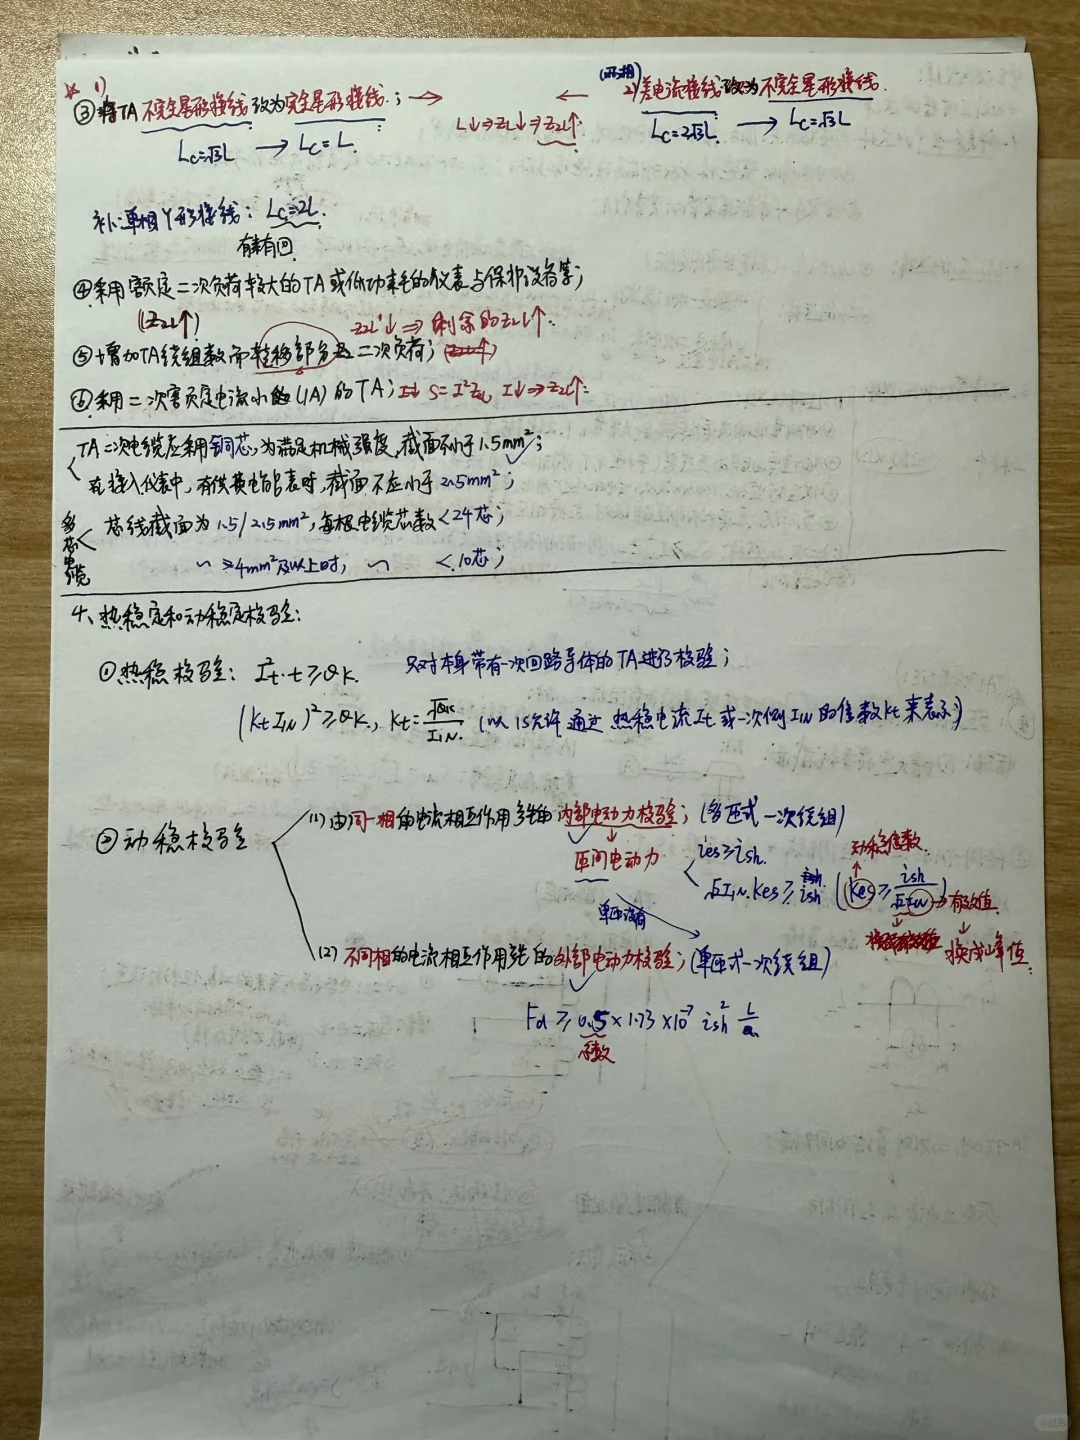 ☆ 1)
③ 将TA不完全星形接线改为完全星形接线; →
Lc=√3L → Lc=L.
← (两相) 2)差电流接线改为不完全星形接线.
Lc=2√3L → Lc=√3L
L↓⇒ZL↓⇒Z2L↑
补:单相Y形接线: Lc=2L.
有去有回
④ 采用额定二次负荷较大的TA或低功耗的仪表与保护设备等;
(Z2L↑)
Z2L'↓ ⇒ 剩余的Z2L↑.
⑤ 增加TA绕组数而转移部分二次负荷;
⑥ 采用二次额定电流小的(1A)的TA; I↓ S=I²Z2L, I↓⇒Z2L↑.
TA二次电缆应采用铜芯,为满足机械强度,截面不小于1.5mm²;
在接入仪表中,有供费电能表时,截面不应小于2.5mm²;
多芯电缆 < 芯线截面为1.5/2.5mm²,每根电缆芯数<24芯;
〃 ≥4mm²及以上时, 〃 <10芯;
4、热稳定和动稳定校验:
① 热稳校验: It²·t≥Qk. 只对本身带有一次回路导体的TA进行校验;
(KtI1N)²≥Qk, Kt=√Qk/I1N. (以1s允许通过热稳电流It或一次侧I1N的倍数Kt来表示)
② 动稳校验
(1) 由同一相的电流相互作用产生的内部电动力校验; (多匝式一次绕组)
匝间电动力
ies≥ish.
√2I1N.Kes≥ish (Kes≥ish/√2I1N)
动稳倍数.
→有效值.
换成峰值.
单匝没有
(2) 不同相的电流相互作用产生的外部电动力校验; (单匝式一次绕组)
Fal≥0.5×1.73×10⁻⁷ ish² L/a.
系数